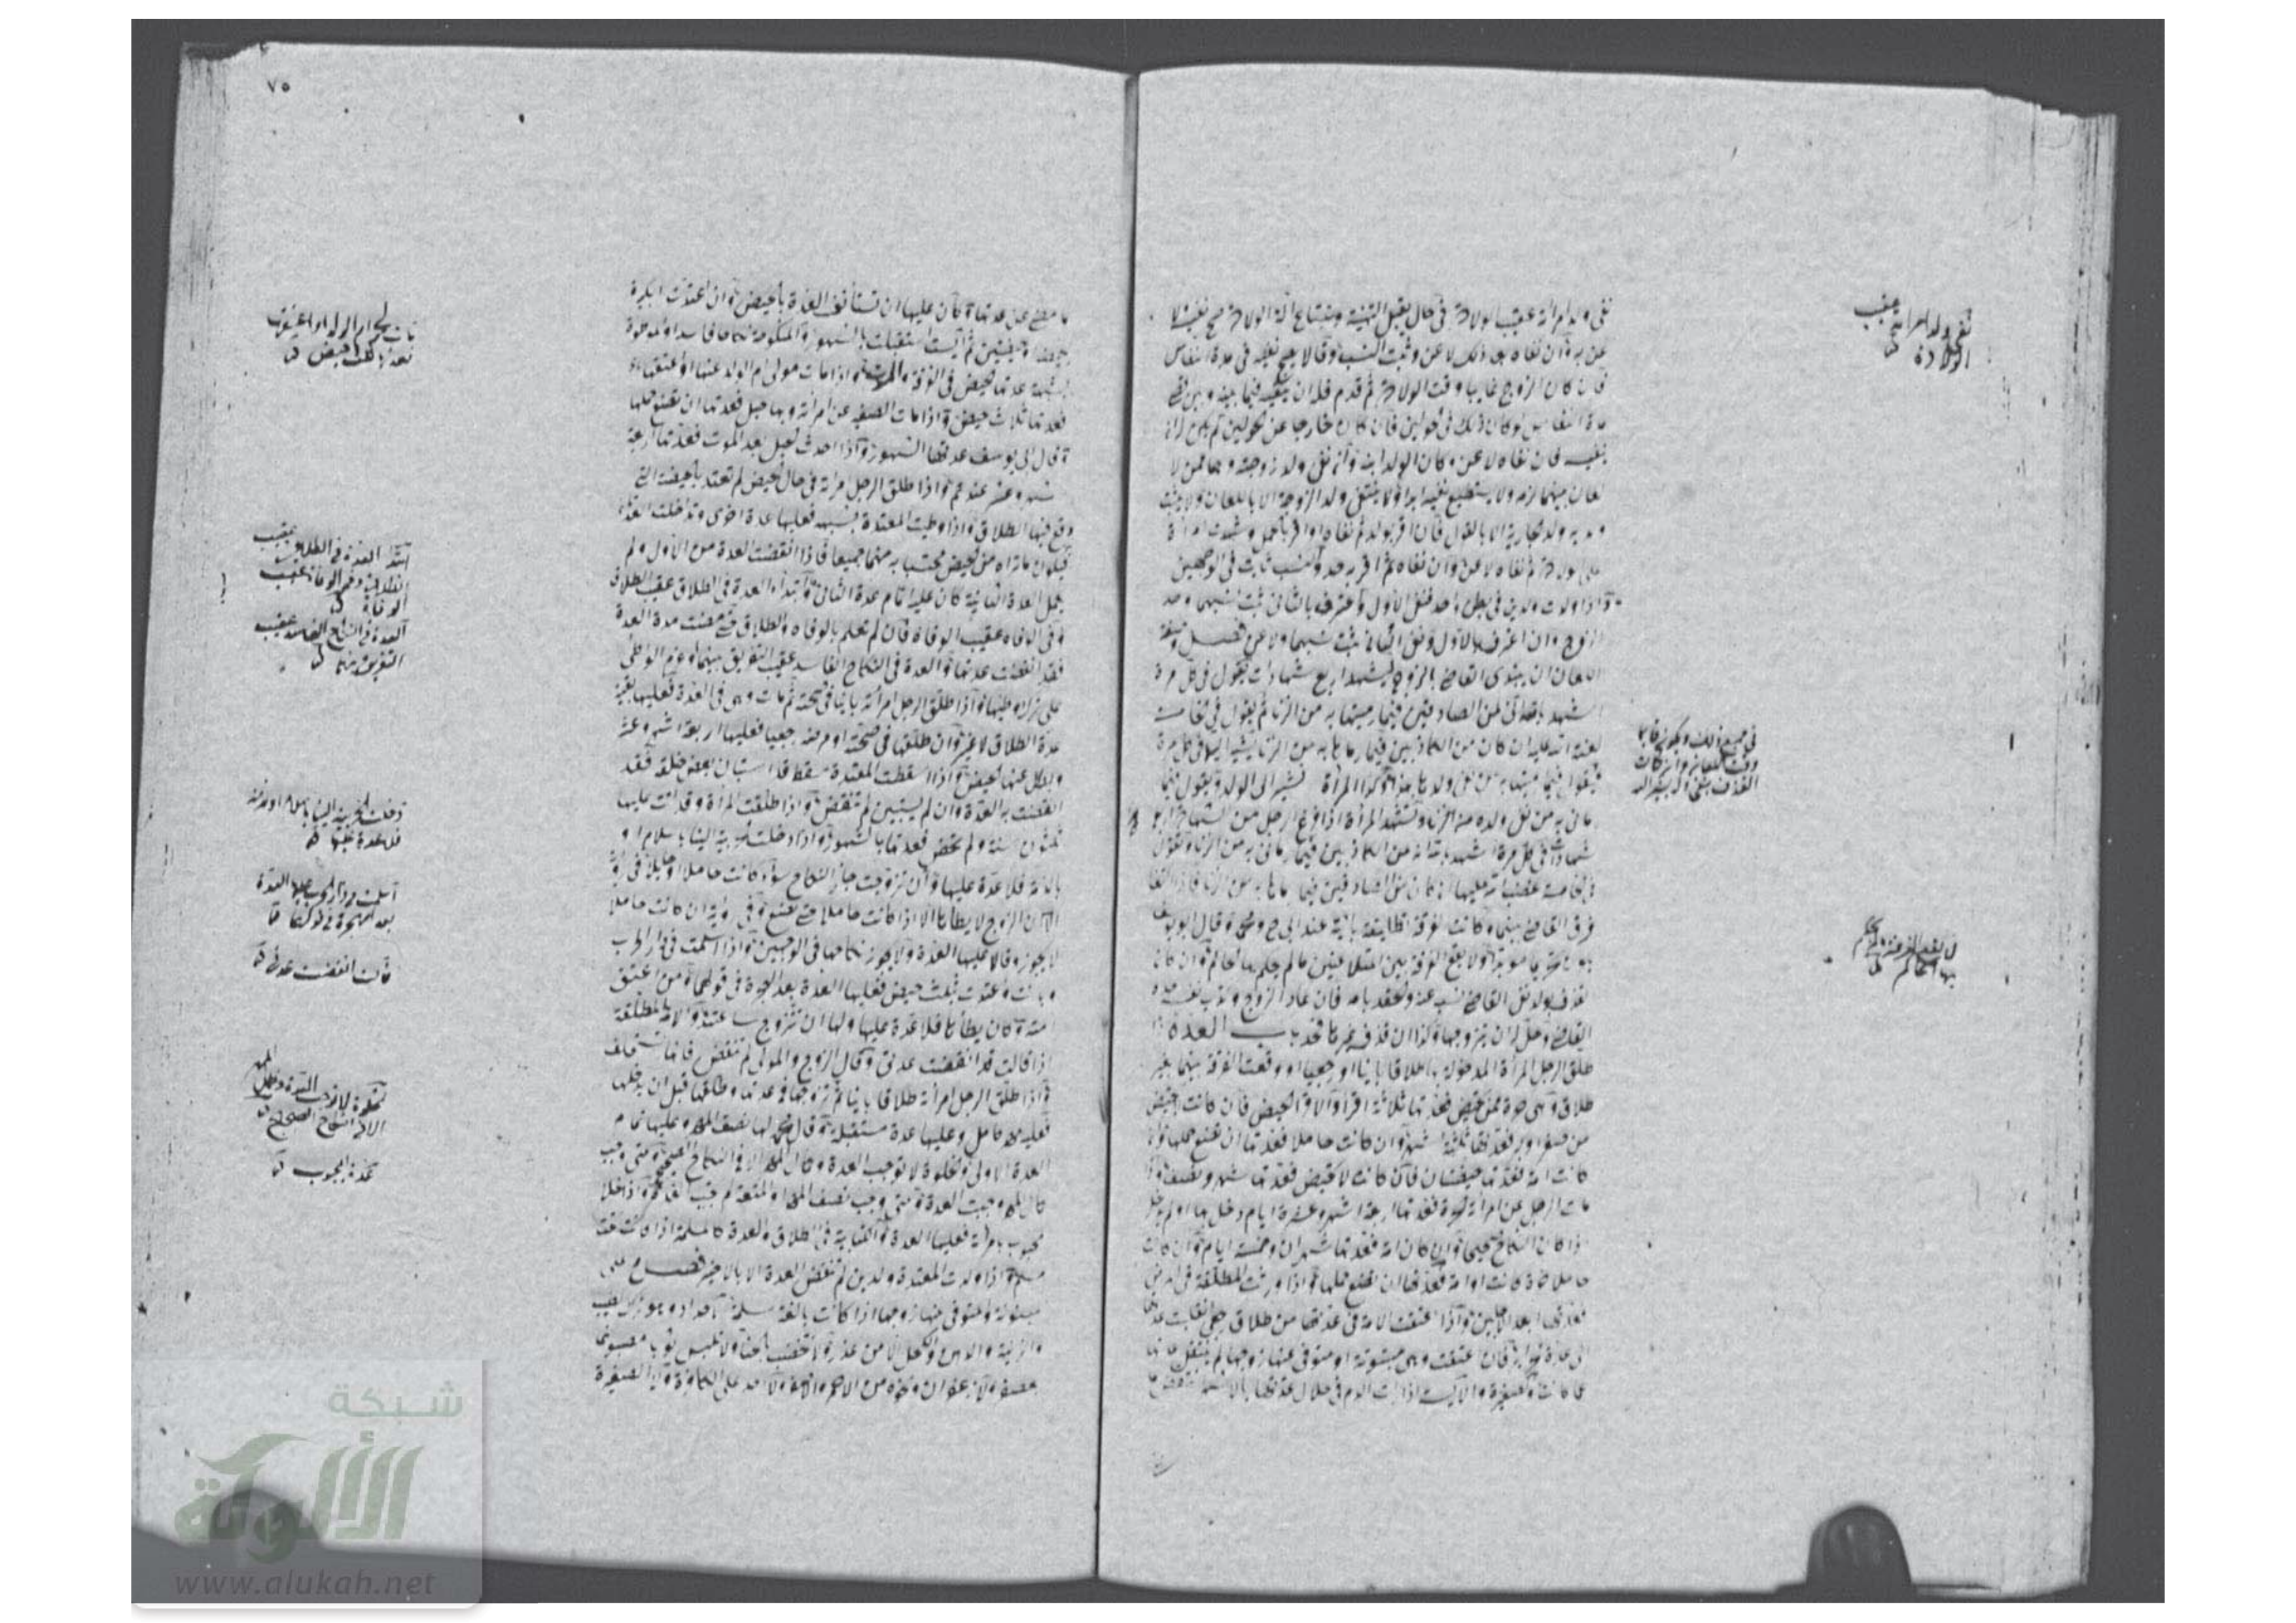 نفى ولد امرأته عقيب الولادة في حال يقبل التهنية ويبتاع آلة الولادة صح نفيه ولا
عن به وان نفاه بعد ذلك لاعن وثبت النسب وقالا يصح نفيه في مدة النفاس
فان كان الزوج غايبا وقت الولادة ثم قدم فله ان ينفيه فيما بينه وبين
مدة النفاس لو كان ذلك في الحولين فان كان خارجا عن الحولين لم يكن له ان
ينفيه فان نفاه لاعن وكان الولد ابنه وان نفى ولد زوجته وهما ممن لا
لعان بينهما لزمه ولا يستطيع نفيه ابدا ولا ينتفي ولد الزوجة الا باللعان ولا
ولد الجارية الا بالقول فان اقر بولد ثم نفاه او اقر بالحمل وشهدت امرأة
على الولادة ثم نفاه لاعن وان نفاه ثم اقر به حد والنسب ثابت في الوجهين
واذا ولدت ولدين في بطن واحد فنفى الاول واعترف بالثاني ثبت نسبهما وحد
الزوج وان اعترف بالاول ونفى الثاني يثبت نسبهما ولاعن فصل وصفة
اللعان ان يبتدى القاضي بالزوج فيشهد اربع شهادات يقول في كل مرة
اشهد بالله اني لمن الصادقين فيما رميتها به من الزنا ثم يقول في الخامسة
لعنة الله عليه ان كان من الكاذبين فيما رماها به من الزنا يشير اليها في كل مرة
فيقول فيما رميتها به من نفي ولدها هذا وكذا المرأة تشير الى الولد وتقول فيما
رماني به من نفي ولده من الزنا وتشهد المرأة اذا فرغ الرجل من الشهادة اربع
شهادات في كل مرة اشهد بالله انه من الكاذبين فيما رماني به من الزنا وتقول
في الخامسة غضب الله عليها ان كان من الصادقين فيما رماها به من الزنا فاذا التعنا
فرق القاضي بينهما وكانت الفرقة تطليقة باينة عند ابي ح ومحمد وقال ابو يوسف
يكون تحريما مؤبدا ولا تقع الفرقة بين المتلاعنين ما لم يحكم بها الحاكم وان كان
القذف بولد نفى القاضي نسبه عنه ويلحقه بامه فان عاد الزوج وكذب نفسه حده
القاضي وحل له ان يتزوجها وكذا ان قذف غيرها فحد باب العدة اذا
طلق الرجل المرأة المدخولة بها طلاقا باينا او رجعيا او وقعت الفرقة بينهما بغير
طلاق وهي حرة ممن تحيض فعدتها ثلاثة اقراء والاقراء الحيض فان كانت لا تحيض
من صغر او كبر فعدتها ثلثة اشهر وان كانت حاملا فعدتها ان تضع حملها وان
كانت امة فعدتها حيضتان فان كانت لا تحيض فعدتها شهر ونصف واذا
مات الرجل عن امرأته الحرة فعدتها اربعة اشهر وعشرة ايام دخل بها او لم يدخل
اذا كان النكاح صحيحا وان كان امة فعدتها شهران وخمسة ايام وان كانت
حاملا حرة كانت او امة فعدتها ان تضع حملها واذا ورثت المطلقة في المرض
فعدتها ابعد الاجلين واذا اعتقت الامة في عدتها من طلاق رجعي انتقلت عدتها
الى عدة الحراير فان اعتقت وهي مبتوتة او متوفى عنها زوجها لم ينتقل عدتها
عما كانت والصغيرة والآيسة اذا رأت الدم في خلال عدتها بالاشهر
نفى ولد امرأته عقيب
الولادة
في جميع ذلك ويكون قايما
وقت اللعان وان كان
القذف بنفي الولد يشير اليه
لا تقع الفرقة ما لم يحكم
بها الحاكم
٧٥
ما مضى من عدتها وكان عليها ان تستأنف العدة بالحيض وان اعتدت الكبيرة
بحيضة او حيضتين ثم آيست استقبلت بالشهور والمنكوحة نكاحا فاسدا والموطوة
بشبهة عدتها الحيض في الفرقة والموت واذا مات مولى ام الولد عنها او اعتقها
فعدتها ثلاث حيض واذا مات الصغير عن امرأته وبها حبل فعدتها ان تضع حملها
وقال ابي يوسف عدتها الشهور واذا حدث الحبل بعد الموت فعدتها اربعة
اشهر وعشر عندهم واذا طلق الرجل امرأته في حال الحيض لم تعتد بالحيضة التي
وقع فيها الطلاق واذا وطيت المعتدة بشبهة فعليها عدة اخرى وتداخلت العدتان
فيكون ما تراه من الحيض محتسبا به منهما جميعا فاذا انقضت العدة من الاول ولم
تكمل العدة الثانية كان عليها تمام عدة الثاني وابتداء العدة في الطلاق عقيب الطلاق
وفي الوفاة عقيب الوفاة فان لم تعلم بالوفاة والطلاق حتى مضت مدة العدة
فقد انقضت عدتها والعدة في النكاح الفاسد عقيب التفريق بينهما او عزم الوطئ
على ترك وطيها واذا طلق الرجل امرأته باينا في صحته ثم مات وهي في العدة فعليها بقية
عدة الطلاق لا غير وان طلقها في صحته او مرضه رجعيا فعليها اربعة اشهر وعشر
وبطل عنها الحيض واذا اسقطت المعتدة سقطا قد استبان بعض خلقه فقد
انقضت به العدة وان لم يستبين لم تنقض واذا طلقت المرأة وقد اتت عليها
ثلثون سنة ولم تحض فعدتها بالشهور واذا دخلت حربية الينا باسلام او
بامانة فلا عدة عليها وان تزوجت جاز النكاح سواء كانت حاملا او حايلا في
الا ان الزوج لا يطأها الا اذا كانت حاملا حتى تضع وفي رواية ان كانت حاملا
لا يجوز وقالا عليها العدة ولا يجوز نكاحها في الوجهين واذا اسلمت في دار الحرب
وبانت واعتدت بثلث حيض فعليها العدة بعد الهجرة في قولهما ومن اعتق
امته وكان يطأها فلا عدة عليها ولها ان تتزوج ساعتئذ والامة المطلقة
اذا قالت قد انقضت عدتي وقال الزوج والمولى لم تنقض فانها تستحلف
واذا طلق الرجل امرأته طلاقا باينا ثم تزوجها في عدتها وطلقها قبل ان يدخلها
فعليه مهر كامل وعليها عدة مستقبلة وقال محمد لها نصف المهر وعليها تمام
العدة الاولى والخلوة لا توجب العدة وكمال المهر الا في النكاح الصحيح ومتى وجب
كمال المهر وجبت العدة ومتى وجب نصف المهر او المتعة لم تجب العدة واذا خلا
المجبوب بامرأته فعليها العدة والكتابية في الطلاق والعدة كالمسلمة اذا كانت تحت
مسلم واذا ولدت المعتدة ولدين لم تنقض العدة الا بالاخير فصل على
المبتوتة والمتوفى عنها زوجها اذا كانت بالغة مسلمة الاحداد وهو ترك الطيب
والزينة والدهن والكحل الا من عذر ولا تختضب بالحناء ولا تلبس ثوبا مصبوغا
بعصفر ولا زعفران ونحوه من الاحمر والاصفر ولا احداد على الكافرة ولا الصغيرة
ابتداء العدة في الطلاق عقيب
الطلاق وفي الوفاة عقيب
الوفاة
العدة في النكاح الفاسد عقيب
التفريق بينهما
دخلت الحربية الينا باسلام او بذمة
فلا عدة عليها
قالت انقضت عدتي
الخلوة لا توجب العدة وكمال المهر
الا في النكاح الصحيح
عدة المجبوب
شبكة
الألوكة
www.alukah.net